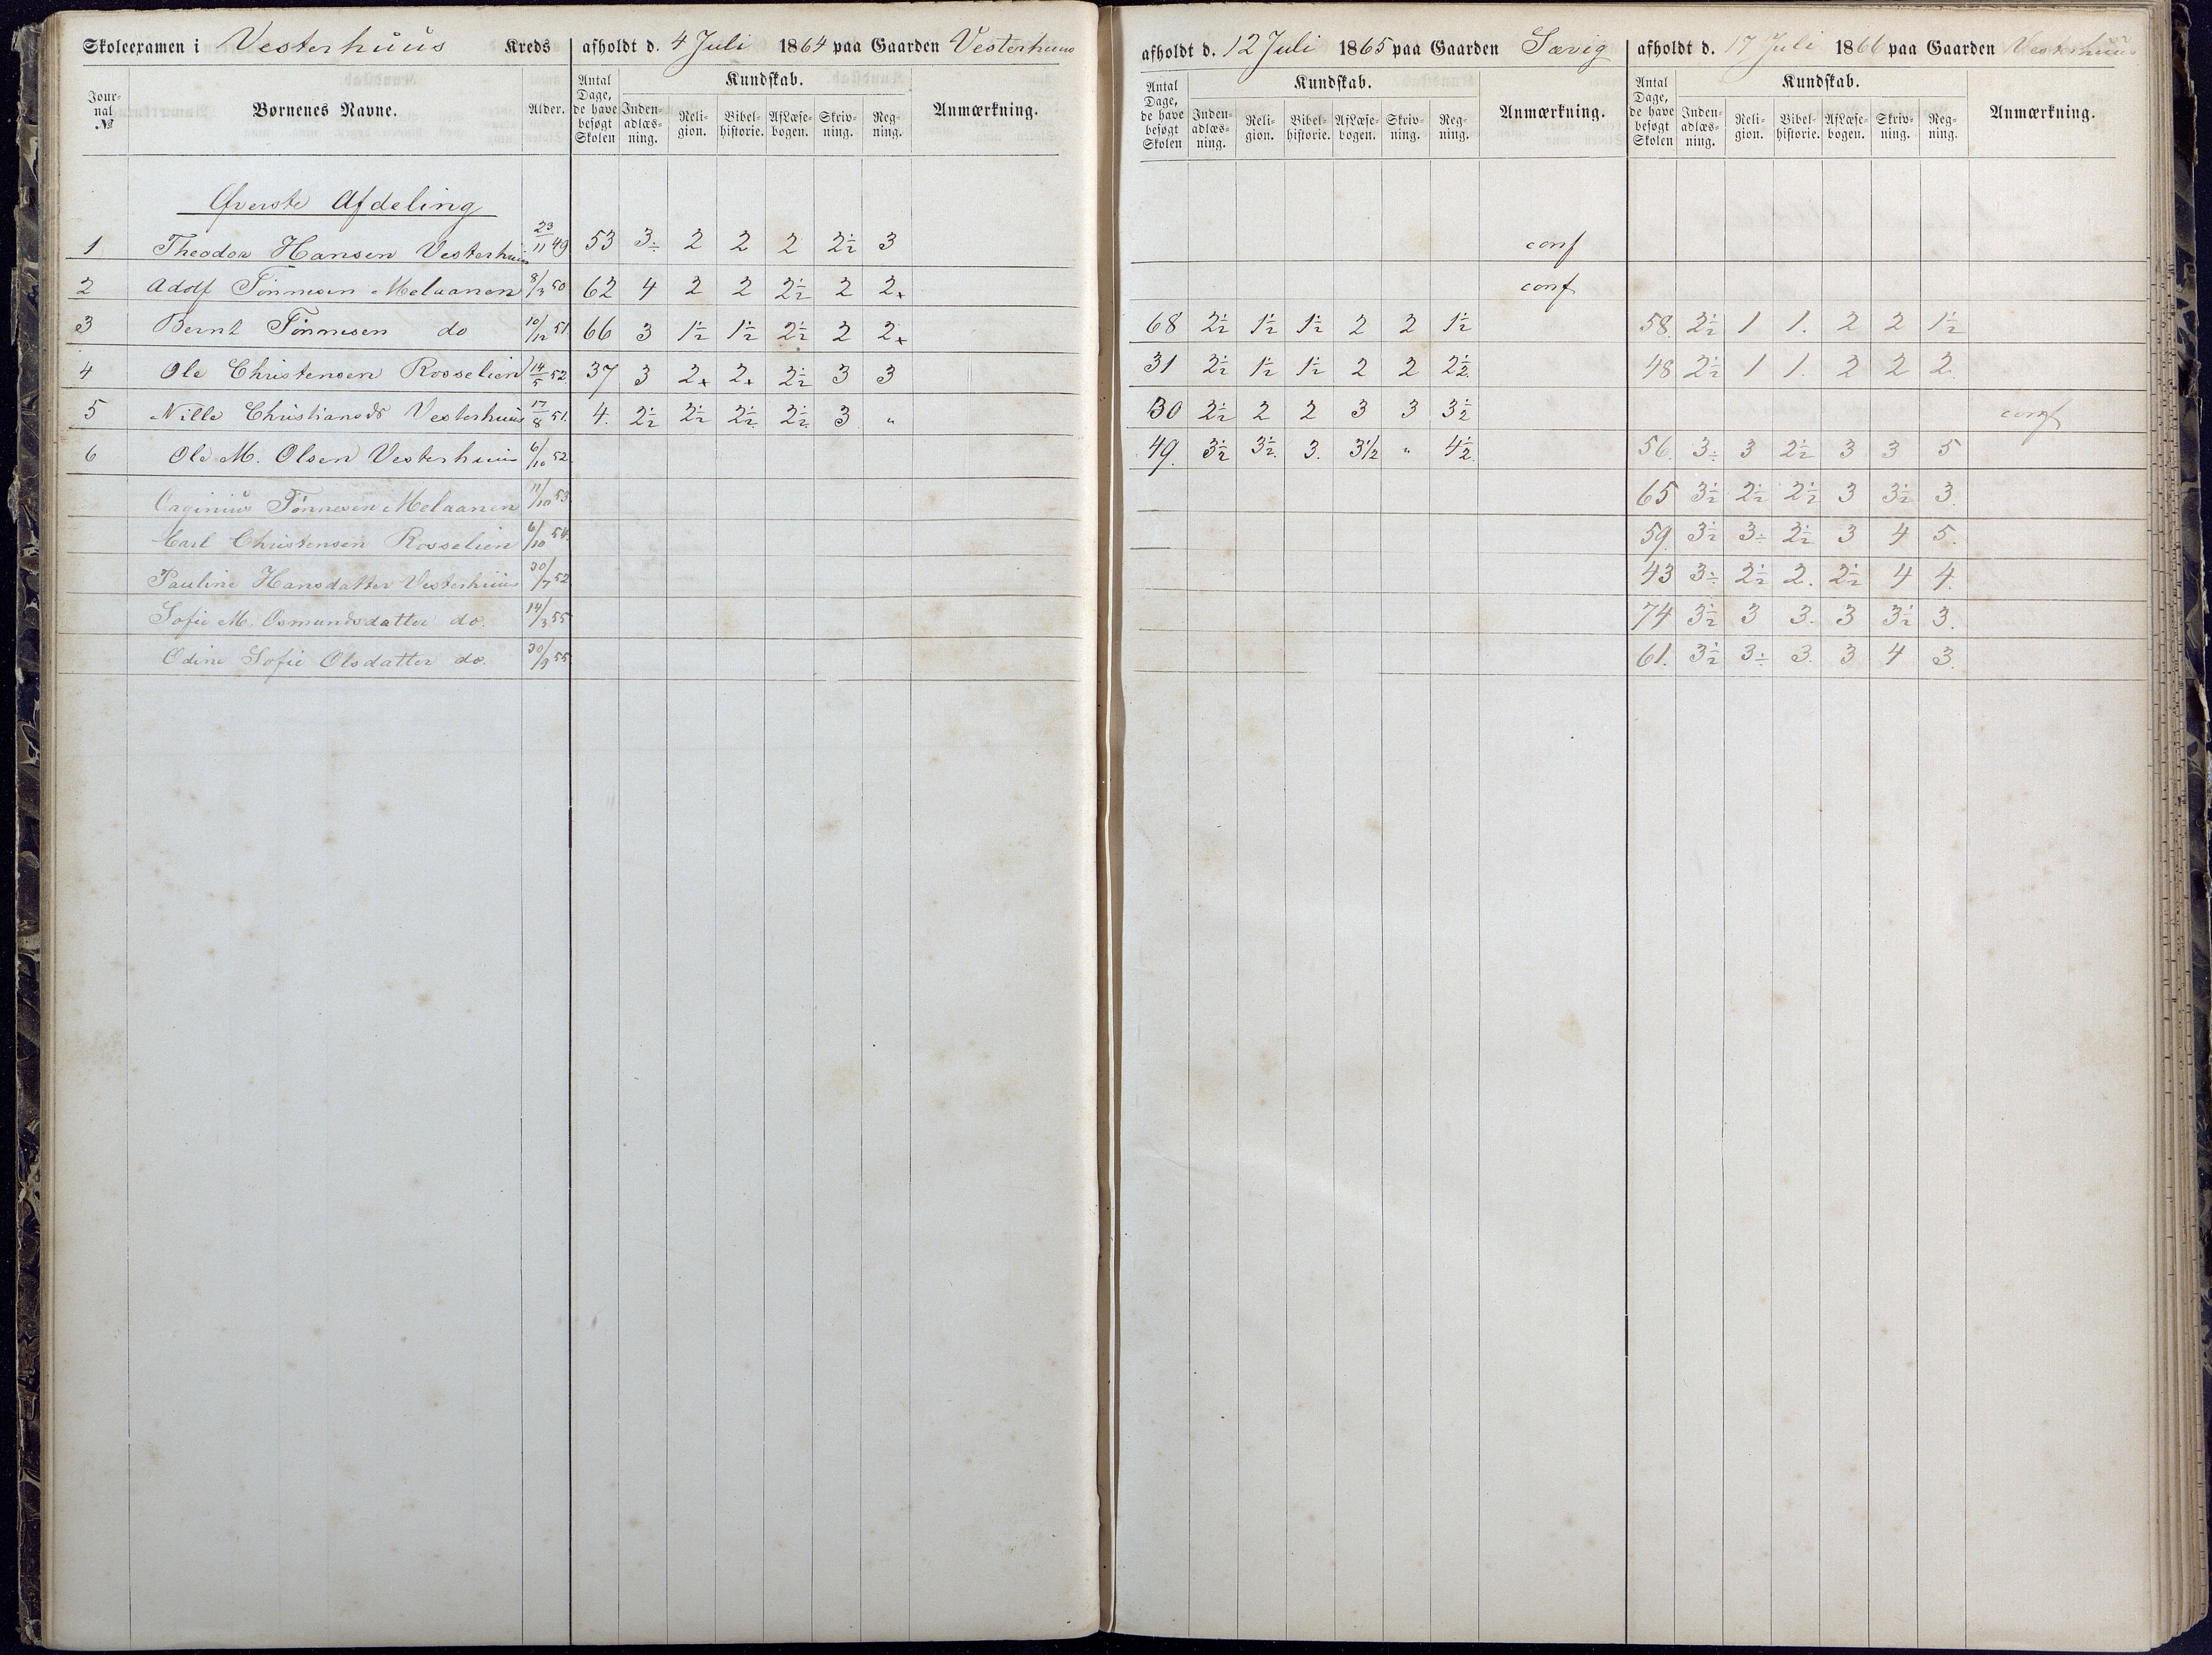 Skoleexamen i Vesterhuus Kreds afholdt d. 4 Juli 1864 paa Gaarden Vesterhuus
Jour-nal № Børnenes Navne. Alder. Antal Dage, de have besøgt Skolen Kundskab. Inden-adlæs-ning. Reli-gion. Bibel-historie. Af Læse-bogen. Skriv-ning. Reg-ning. Anmærkning.
Øverste Afdeling
1 Theodor Hansen Vesterhuus 23/11 49 53 3÷ 2 2 2 2½ 3
2 Adolf Tönnesen Melaanen 8/3 50 62 4 2 2 2½ 2 2+
3 Bernt Tönnesen do 10/12 51 66 3 1½ 1½ 2½ 2 2+
4 Ole Christensen Rosselien 14/5 52. 37 3 2+ 2+ 2½ 3 3
5 Nille Christiansdr Vesterhuus 17/8 51. 4. 2½ 2½ 2½ 2½ 3 "
6 Ole M. Olsen Vesterhuus 6/10 52.
Tönnesen Melaanen 11/10 53
Carl Christensen Rosselien 6/10 54.
Pauline Hansdatter Vesterhuus 30/7 52
Sofie M. Osmundsdatter do. 14/3 55
Odine Sofie Olsdatter do. 30/9 55
afholdt d. 12 Juli 1865 paa Gaarden Sævig
Antal Dage, de have besøgt Skolen Kundskab. Inden-adlæs-ning. Reli-gion. Bibel-historie. Af Læse-bogen. Skriv-ning. Reg-ning. Anmærkning.
conf
conf
68 2½ 1½ 1½ 2 2 1½
31 2½ 1½ 1½ 2 2 2½
30 2½ 2 2 3 3 3½
49. 3½ 3½ 3. 3½ " 4½
afholdt d. 17 Juli 1866 paa Gaarden Vesterhuus
Antal Dage, de have besøgt Skolen Kundskab. Inden-adlæs-ning. Reli-gion. Bibel-historie. Af Læse-bogen. Skriv-ning. Reg-ning. Anmærkning.
58. 2½ 1 1. 2 2 1½
48 2½ 1 1. 2 2 2.
conf
56. 3÷ 3 2½ 3 3 5
65 3½ 2½ 2½ 3 3½ 3.
59. 3½ 3÷ 2½ 3 4 5.
43 3÷ 2½ 2. 2½ 4 4.
74 3½ 3 3. 3 3½ 3.
61. 3½ 3÷ 3. 3 4 3.